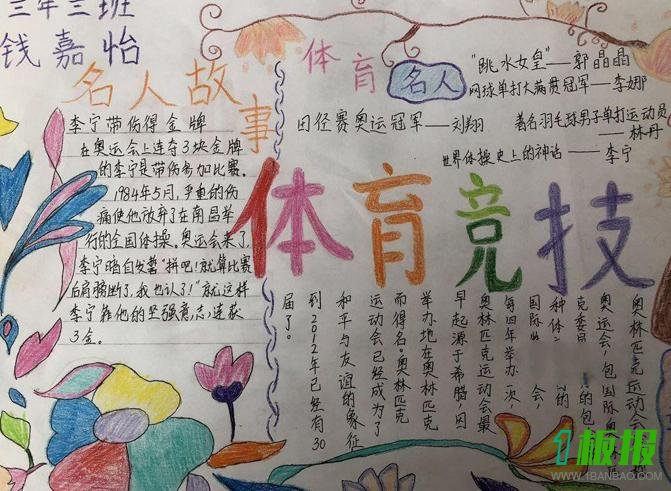 三年三班
钱嘉怡
名人故事
李宁带伤得金牌
在奥运会上连夺3块金牌
的李宁是带伤参加比赛.
1984年5月,严重的伤
痛使他放弃了在南昌举
行的全国体操。奥运会来了,
李宁暗自发誓"拼吧!就算比赛
后肩膀断了,我也认了!"就这样
李宁靠他的坚强意志,连获
3金。
体育名人
"跳水女皇"——郭晶晶
网球单打大满贯冠军——李娜
田径赛奥运冠军——刘翔
著名羽毛球男子单打运动员
——林丹
世界体操史上的神话——李宁
体育竞技
奥林匹克运动会
奥运会,包国际奥
克委员
种体
国际
的包
的
会,
每四年举办一次
奥林匹克运动会最
早起源于希腊,因
举办地在奥林匹克
而得名。奥林匹克
运动会已经成为了
和平与友谊的象征
到2012年已经有30
届了。
1板报
WWW.1BANBAO.COM